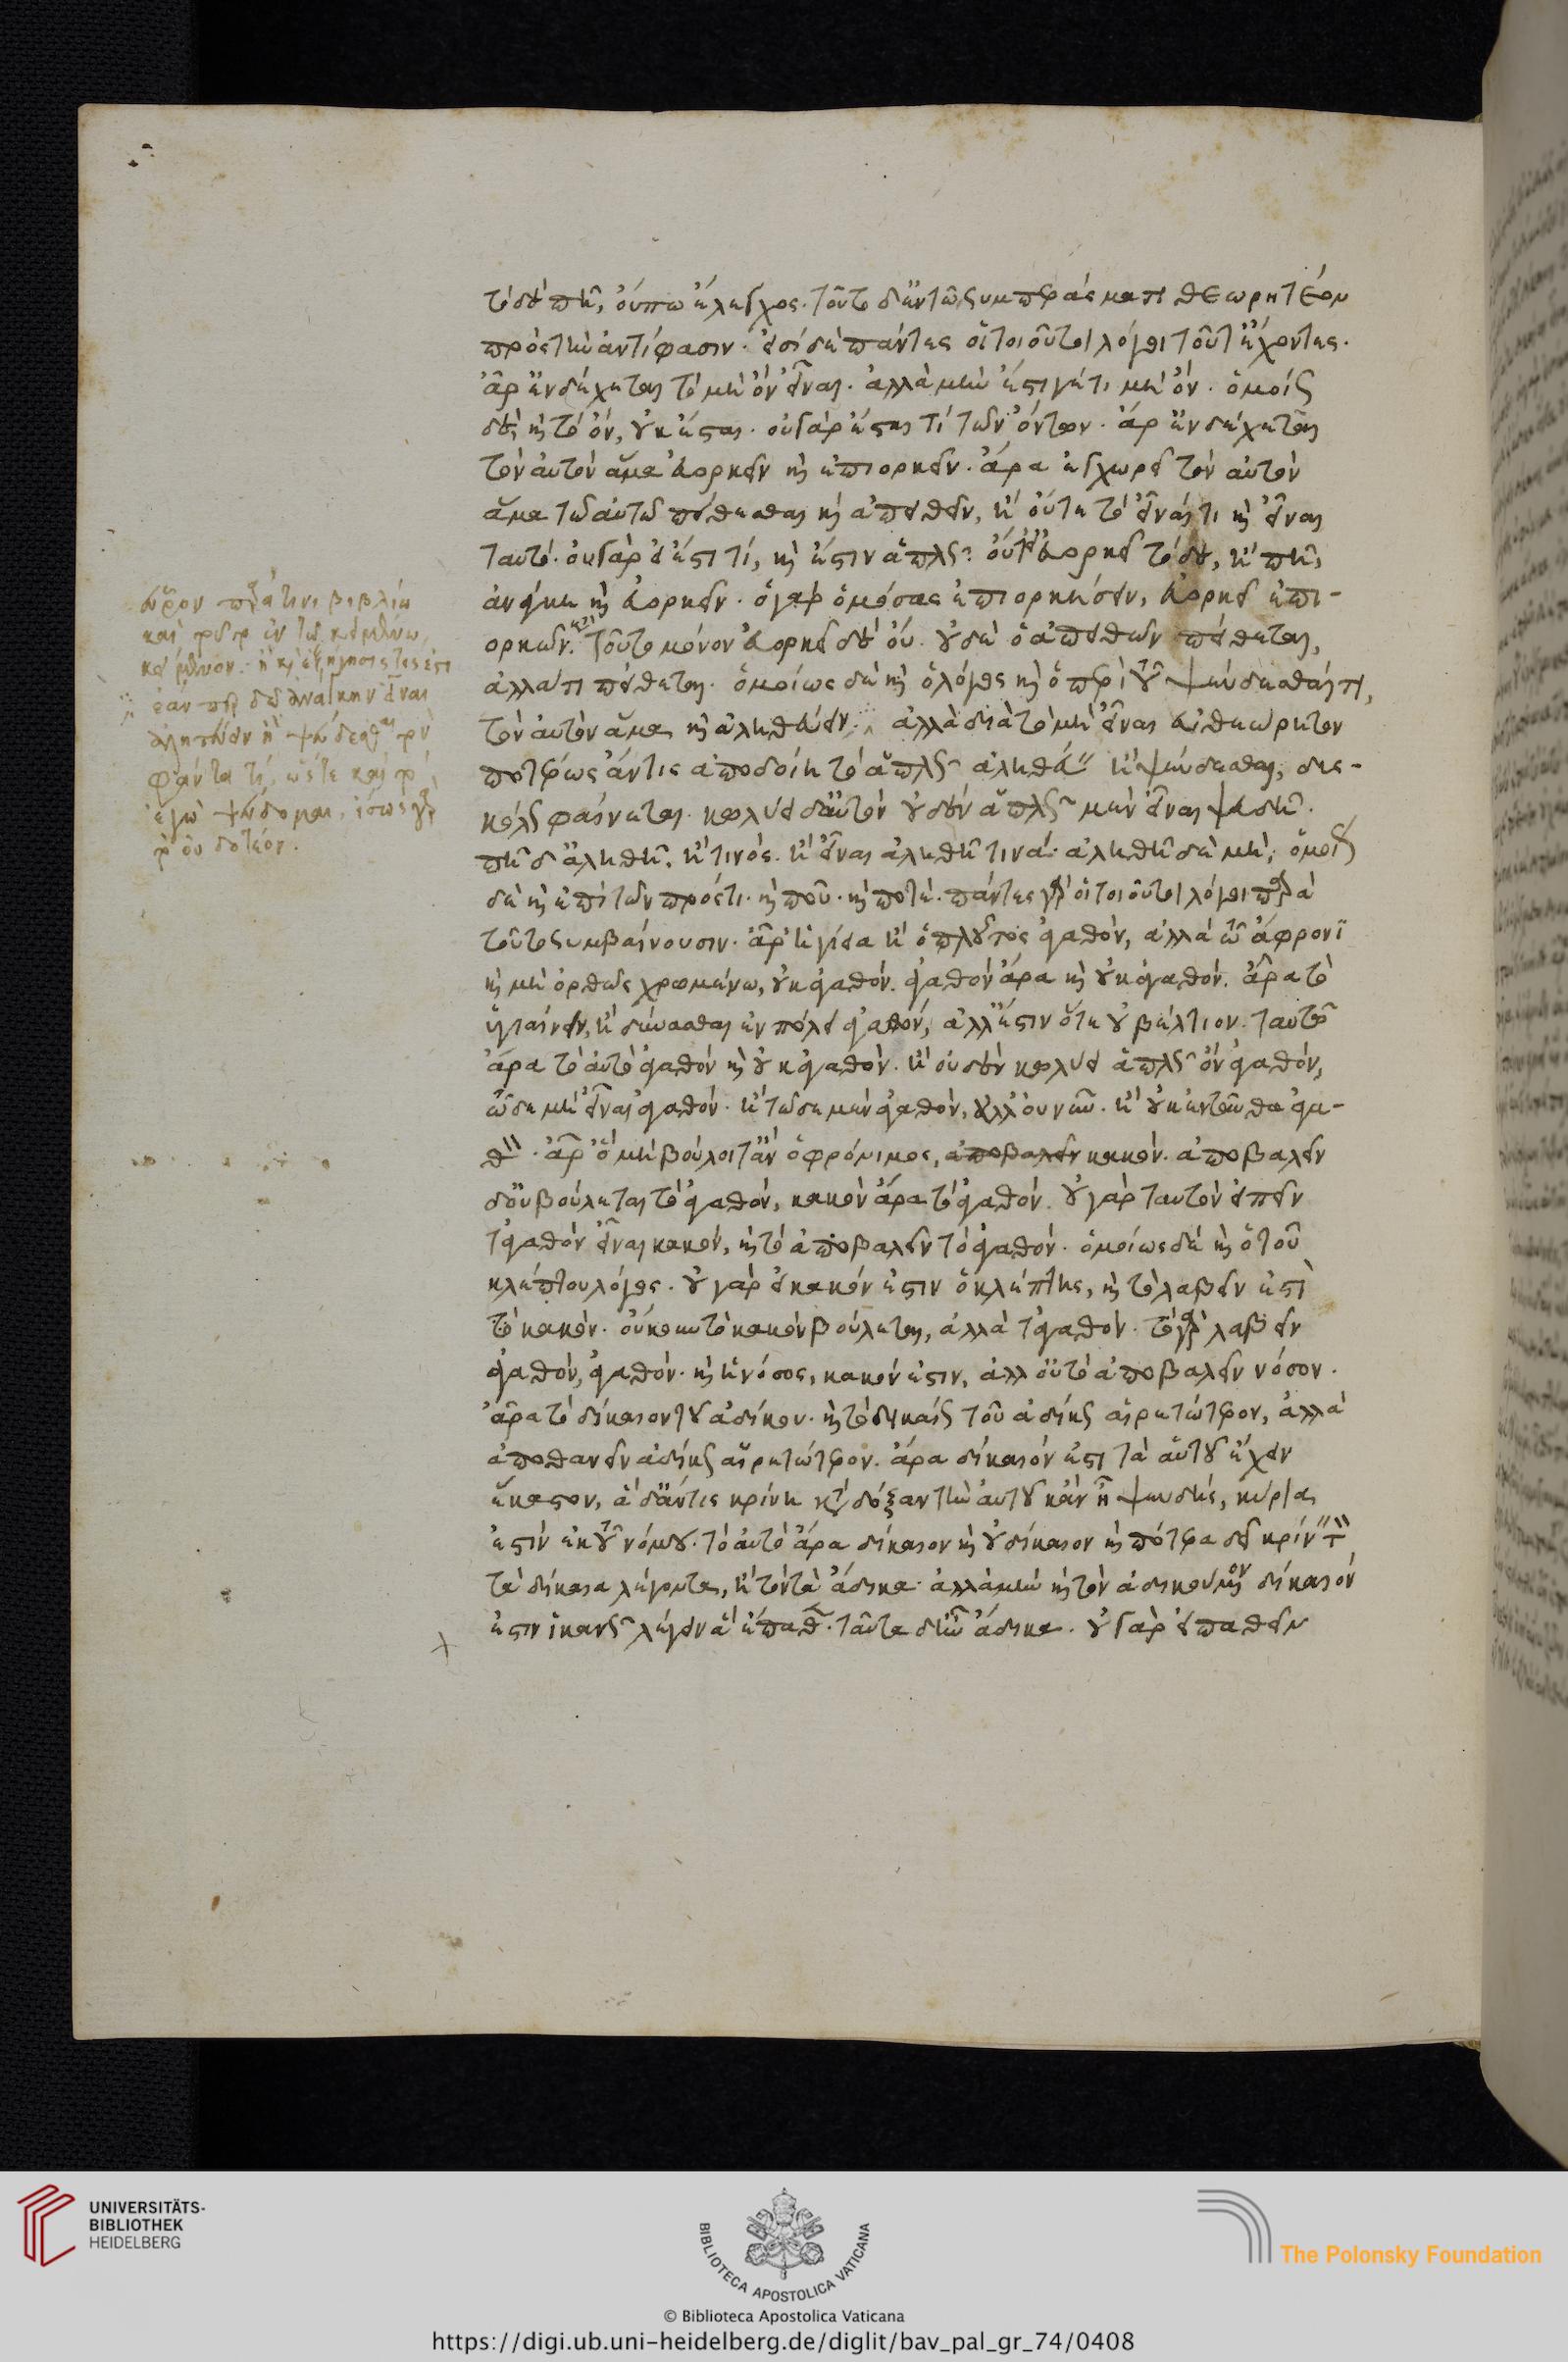 τὸ δὲ πῆ, οὔπω ἔλεγχος. τοῦτο δ' ἐν τῶ συμπεράσματι θεωρητέον
πρὸς τὴν ἀντίφασιν. εἰσὶ δὲ πάντες οἱ τοιοῦτοι λόγοι τοῦτ' ἔχοντες.
ἆρ' ἐνδέχεται τὸ μὴ ὂν εἶναι. ἀλλὰ μὴν ἔστι γέ τι μὴ ὄν. ὁμοίως
δὲ καὶ τὸ ὄν, οὐκ ἔσται. οὐ γὰρ ἔσται τί τῶν ὄντων. ἆρ' ἐνδέχεται
τὸν αὐτὸν ἅμα εὐορκεῖν καὶ ἐπιορκεῖν. ἆρα ἐγχωρεῖ τὸν αὐτὸν
ἅμα τῶ αὐτῶ πείθεσθαι καὶ ἀπειθεῖν, ἢ οὔτε τὸ εἶναί τι καὶ εἶναι
ταυτό. οὐ γὰρ εἰ ἔστι τί, καὶ ἔστιν ἁπλῶς οὔτ' εἰ εὐορκεῖ τόδε, ἢ πῆ,
ἀνάγκη καὶ εὐορκεῖν. ὁ γὰρ ὀμόσας ἐπιορκήσειν, εὐορκεῖ ἐπι-
ορκῶν. τοῦτο μόνον εὐορκεῖ δὲ οὔ. οὐδὲ ὁ ἀπειθῶν πείθεται,
ἀλλὰ τὶ πείθεται. ὁμοίως δὲ καὶ ὁ λόγος καὶ ὁ περὶ τοῦ ψεύδεσθαί τι,
τὸν αὐτὸν ἅμα καὶ ἀληθεύειν ἀλλὰ διὰ τὸ μὴ εἶναι εὐθεώρητον
ποτέρως ἄν τις ἀποδοίη τὸ ἁπλῶς ἀληθεύειν ἢ ψεύδεσθαι, δύς-
κολον φαίνεται. κωλύει δ' αὐτὸν οὐδὲν ἁπλῶς μὲν εἶναι ψευδῆ.
πῆ δ' ἀληθῆ, ἢ τινός. ἢ εἶναι ἀληθῆ τινά. ἀληθῆ δὲ μή, ὁμοίως
δὲ καὶ ἐπὶ τῶν πρός τι. καὶ ποῦ. καὶ ποτέ. πάντες γὰρ οἱ τοιοῦτοι λόγοι παρὰ
τοῦτο συμβαίνουσιν. ἆρ' ἡ ὑγίεια ἢ ὁ πλοῦτος ἀγαθόν, ἀλλὰ τῶ ἄφρονι
καὶ μὴ ὀρθῶς χρωμένω, οὐκ ἀγαθόν. ἀγαθὸν ἄρα καὶ οὐκ ἀγαθόν. ἆρα τὸ
ὑγιαίνειν, ἢ δύνασθαι ἐν πόλει ἀγαθόν, ἀλλ' ἔστιν ὅτε οὐ βέλτιον. ταυτὸ
ἄρα τὸ αὐτὸ ἀγαθὸν καὶ οὐκ ἀγαθόν. ἢ οὐδὲν κωλύει ἁπλῶς ὂν ἀγαθόν,
τῶδε μὴ εἶναι ἀγαθόν. ἢ τῶδε μὲν ἀγαθόν, ἀλλ' οὐ νῦν. ἢ οὐκ ἐνταῦθα ἀγα-
θόν. ἆρ' ὃ μὴ βούλοιτ' ἂν ὁ φρόνιμος, κακόν. ἀποβαλεῖν
δ' οὐ βούλεται τὸ ἀγαθόν, κακὸν ἄρα τὸ ἀγαθόν. οὐ γὰρ ταυτὸν εἰπεῖν
τἀγαθὸν εἶναι κακόν, καὶ τὸ ἀποβαλεῖν τὸ ἀγαθόν. ὁμοίως δὲ καὶ ὁ τοῦ
κλέπτου λόγος. οὐ γὰρ εἰ κακόν ἐστιν ὁ κλέπτης, καὶ τὸ λαβεῖν ἐστὶ
τὸ κακόν. οὔκουν τὸ κακὸν βούλεται, ἀλλὰ τἀγαθόν. τὸ γὰρ λαβεῖν
ἀγαθόν, ἀγαθόν. καὶ ἡ νόσος, κακόν ἐστιν, ἀλλ' οὐ τὸ ἀποβαλεῖν νόσον.
ἆρα τὸ δίκαιον τοῦ ἀδίκου. καὶ τὸ δικαίως τοῦ ἀδίκως αἱρετώτερον, ἀλλὰ
ἀποθανεῖν ἀδίκως αἱρετώτερον. ἆρα δίκαιόν ἐστι τὰ αὑτοῦ ἔχειν
ἕκαστον, ἃ δ' ἄν τις κρίνη κατὰ δόξαν τὴν αὑτοῦ κἂν ἦ ψευδής, κύρια
ἐστὶν ἐκ τοῦ νόμου. τὸ αὐτὸ ἄρα δίκαιον καὶ οὐ δίκαιον καὶ πότερα δεῖ κρίνειν τὸν
τὰ δίκαια λέγοντα, ἢ τὸν τὰ ἄδικα. ἀλλὰ μὴν καὶ τὸν ἀδικούμενον δίκαιόν
ἐστιν ἱκανῶς λέγειν ἃ ἔπαθε. ταῦτα δ' ἦν ἄδικα. οὐ γὰρ εἰ παθεῖν
εὗρον παλατινι βιβλίω
καὶ
κείμενον. ἢ καὶ ἐξήγησις τις ἐστι
ἐὰν περ δὲ ἀνάγκην εἶναι
ἀληθεύειν ἢ ψεύδεσθαι
φάντα τί, ὥστε καὶ
ἐγὼ ψεύδομαι, ἴσως γὰρ
οὐ δοτέον.
UNIVERSITÄTS-
BIBLIOTHEK
HEIDELBERG
BIBLIOTECA APOSTOLICA VATICANA
The Polonsky Foundation
© Biblioteca Apostolica Vaticana
https://digi.ub.uni-heidelberg.de/diglit/bav_pal_gr_74/0408